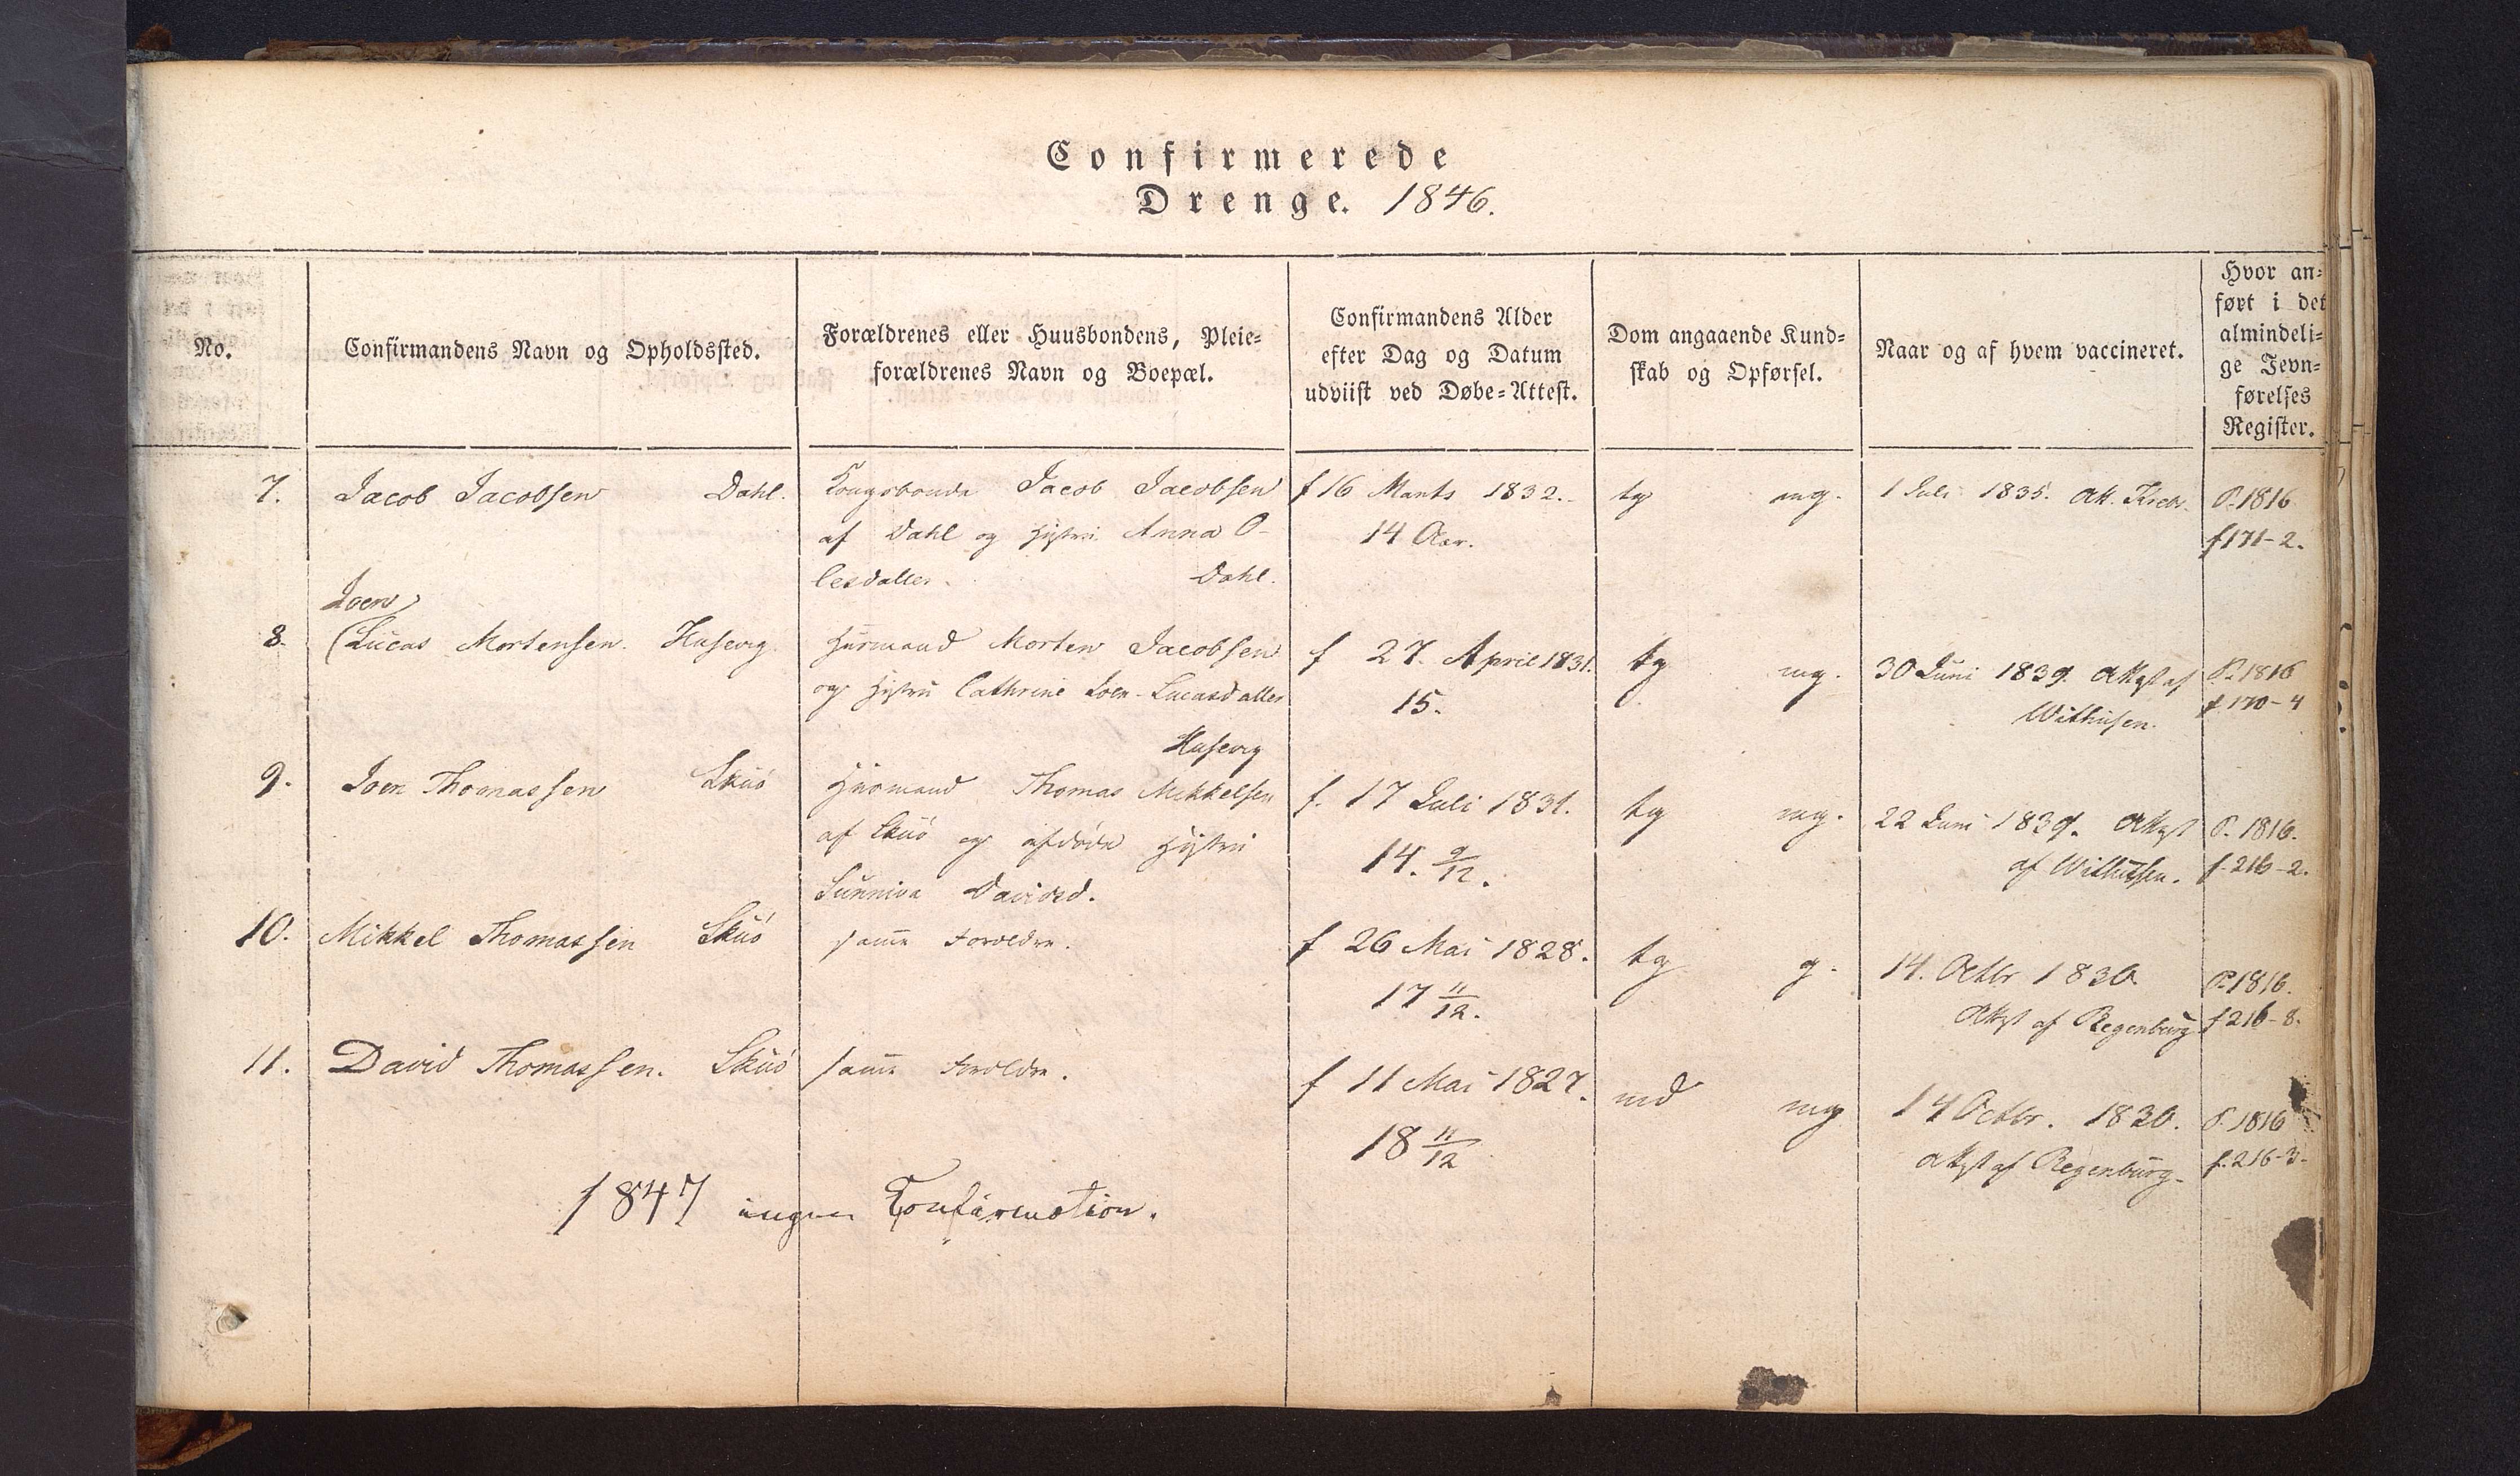 Confirmerede
Drenge. 1846.
No.
Confirmandens Navn og Opholdssted.
Forældrenes eller Huusbondens, Pleie-
forældrenes Navn og Boepæl.
Confirmandens Alder
efter Dag og Datum
udviist ved Døbe-Attest.
Dom angaaende Kund-
skab og Opførsel.
Naar og af hvem vaccineret.
Hvor an-
ført i det
almindeli-
ge Jevn-
førelses
Register.
7. Jacob Jacobsen Dahl.
Kongsbonde Jacob Jacobsen
af Dahl og Hustru Anna O-
lesdatter. Dahl.
f 16 Marts 1832.
14 Aar.
tg mg.
1 Juli 1835. Att.
P. 1816
f 171-2.
8. Joen
(Lucas Mortensen. Husevig.
Husmand Morten Jacobsen
og Hustru Cathrine Joen-Lucasdatter
Husevig
f 27. April 1831.
15.
tg mg.
30 Juni 1839. Attest af
Withusen.
P. 1816
f. 170-4
9. Joen Thomassen Skuö
Husmand Thomas Mikkelsen
af Skuö og afdöde Hustru
Sunniva Davidsd.
f. 17 Juli 1831.
14. 9/12.
tg mg.
22 Juni 1839. Attest
af Withusen.
P. 1816.
f. 216-2.
10. Mikkel Thomassen Skuö
samme Foroldre.
f 26 Mai 1828.
17 11/12.
tg g.
14. Octbr 1830.
Attst af Regenburg
P. 1816.
f 216-8.
11. David Thomassen. Skuö
samme Foroldre.
f 11 Mai 1827.
18 11/12
md mg
14 Octbr. 1830.
Attst af Regenburg.
P. 1816
f. 216-3.
1847 ingen Confirmation.